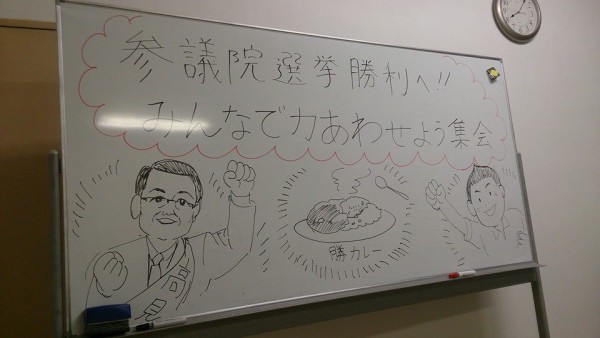 参議院選挙勝利へ!!
みんなで力あわせよう集会
勝カレー